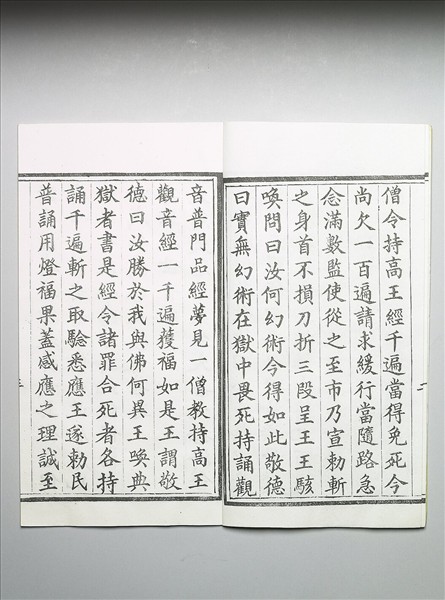 僧令持高王經千遍當得免死今
尚欠一百遍請求緩行當隨路急
念滿數監使從之至市乃宣勅斬
之身首不損刀折三段呈王王駭
喚問曰汝何幻術今得如此敬德
曰實無幻術在獄中畏死持誦觀
音普門品經夢見一僧教持高王
觀音經一千遍獲福如是王謂敬
德曰汝勝於我與佛何異王喚典
獄者書是經令諸罪合死者各持
誦千遍斬之取驗悉應王遂勅民
普誦用燈福果蓋感應之理誠至